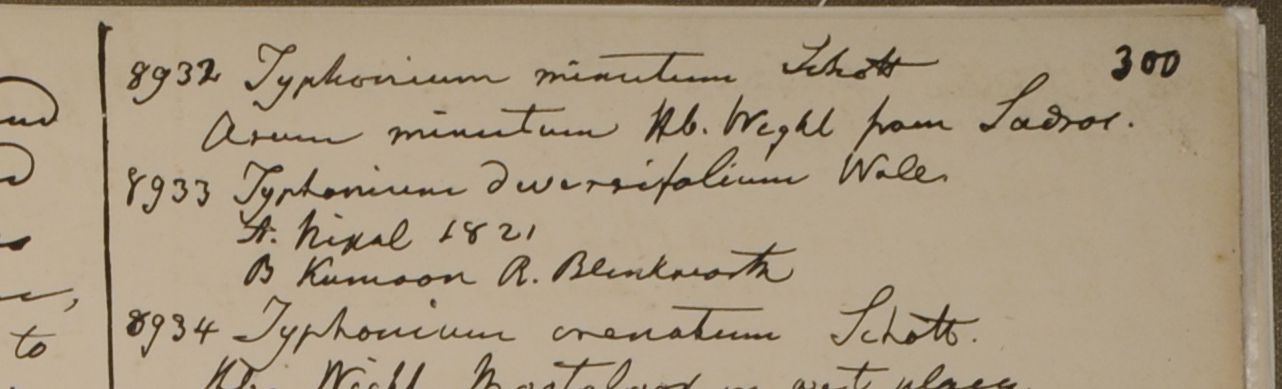 300
8932 Typhonium minutum Schott
Arum minutum Hb. Wight from
8933 Typhonium diversifolium Wall.
A. Nipal 1821
B Kumaon R. Blinkworth
8934 Typhonium crenatum Schott.
Hb. Wight in wet places
to